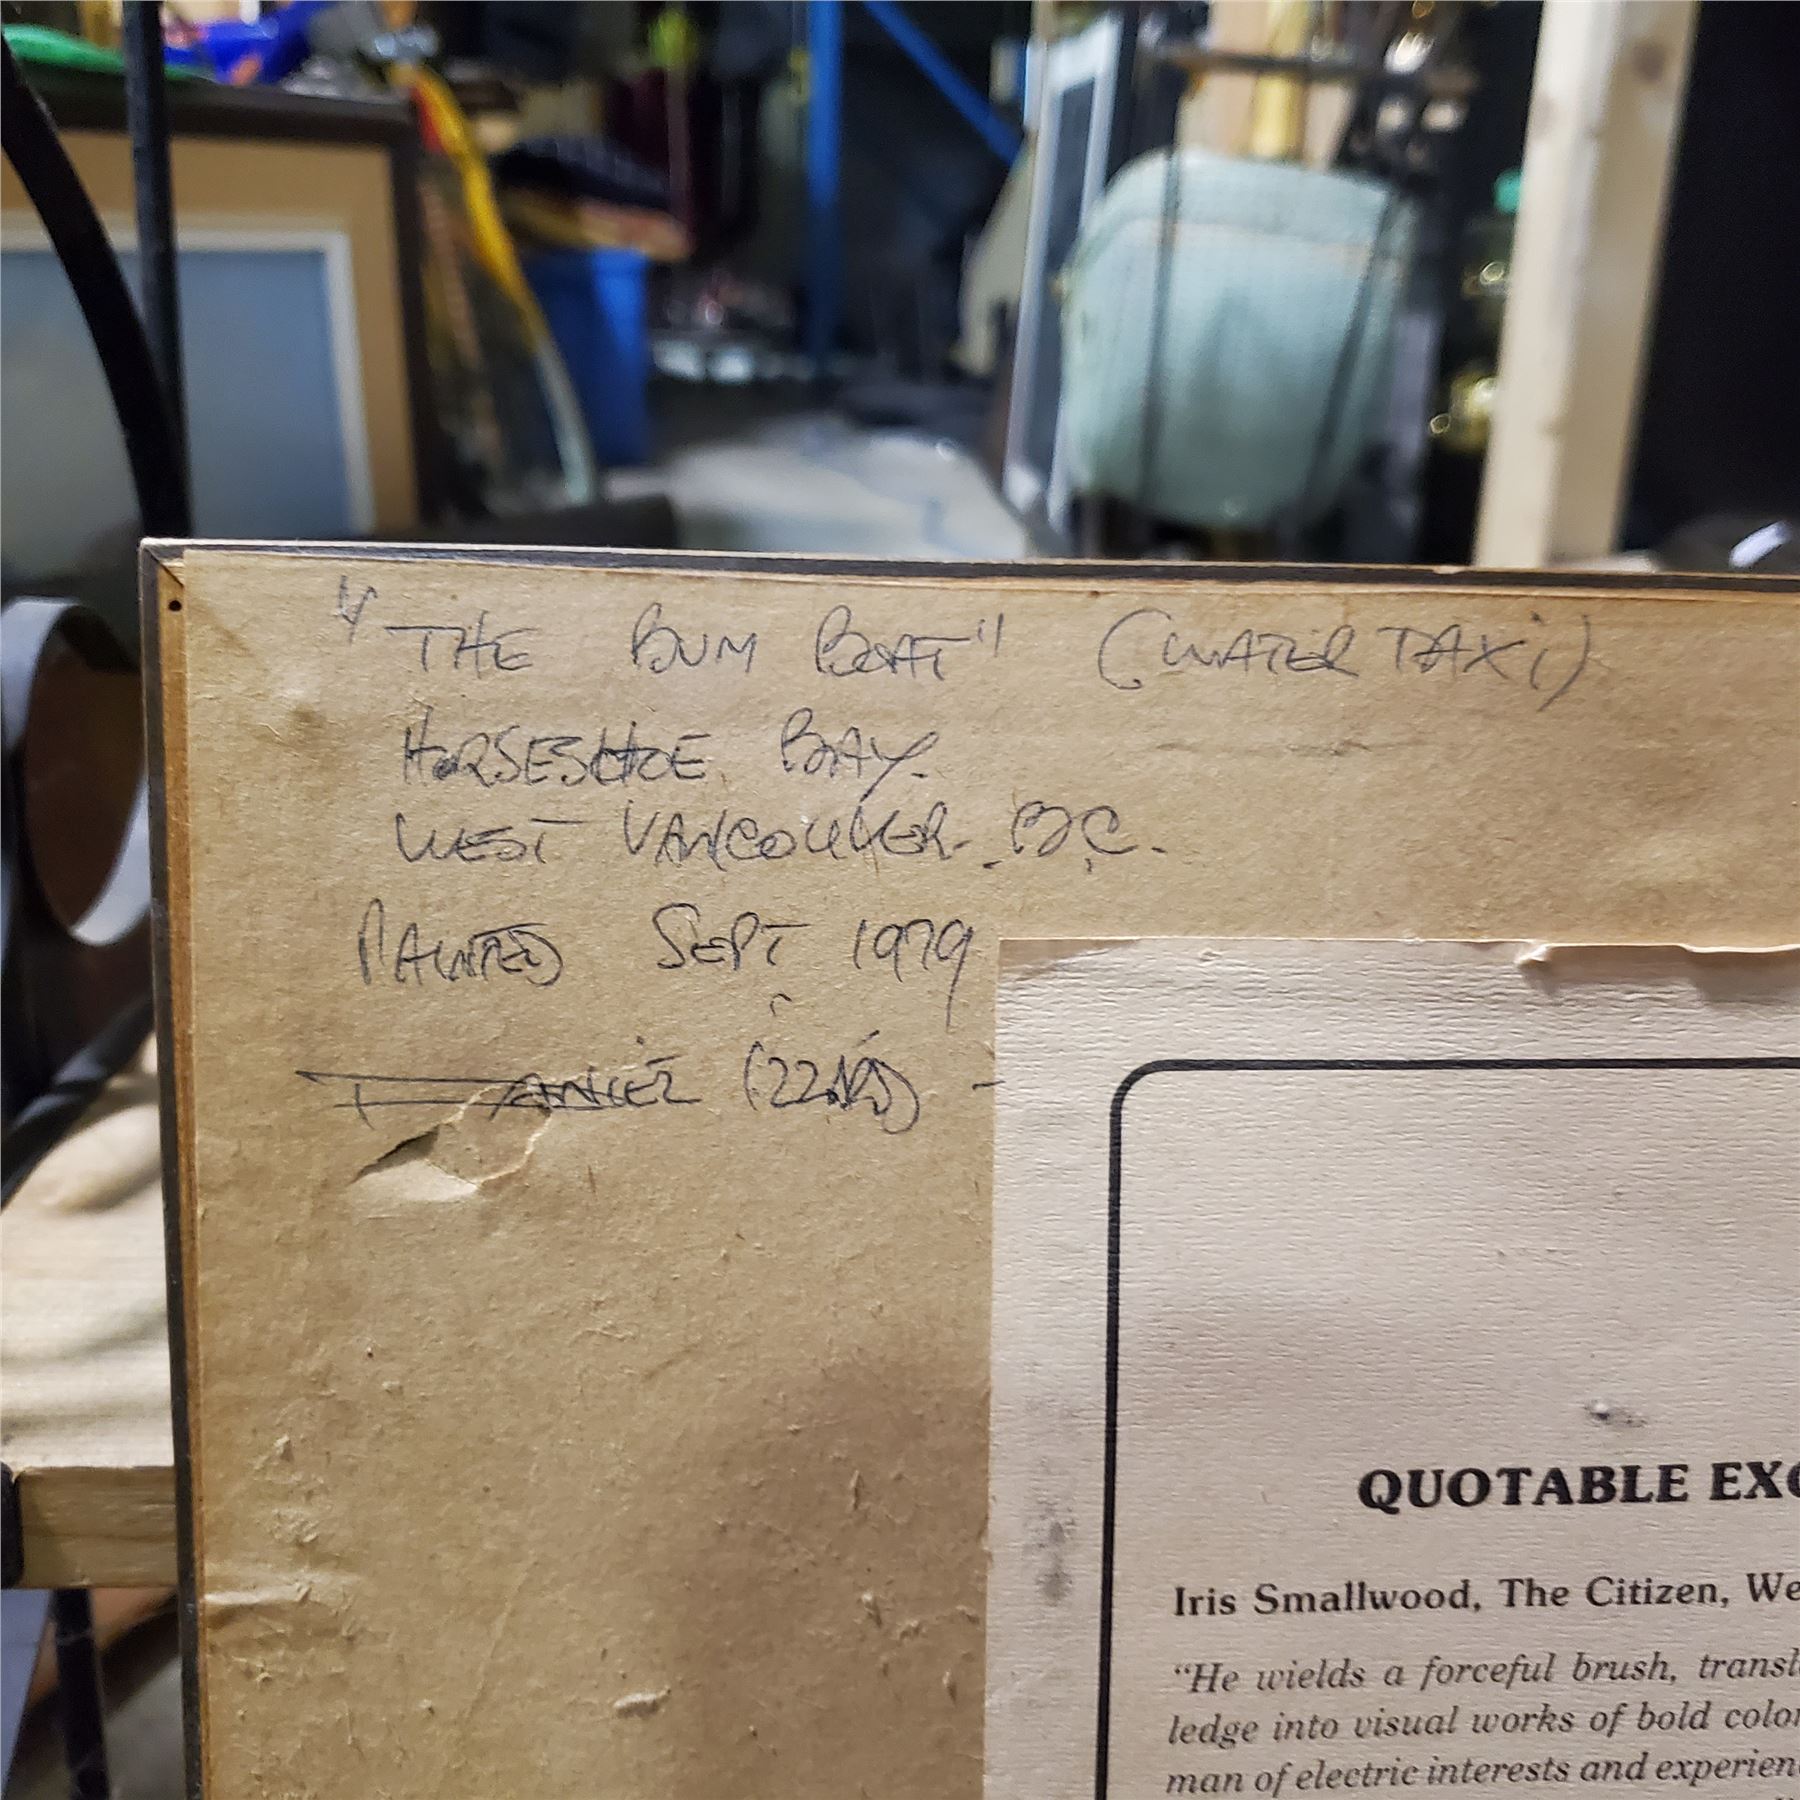 "THE BUM BOAT" (WATER TAXI)
HORSESHOE BAY.
WEST VANCOUVER. B.C.
PAINTED SEPT 1979
QUOTABLE EXC
Iris Smallwood, The Citizen, We
"He wields a forceful brush, transl
ledge into visual works of bold color
man of electric interests and experien